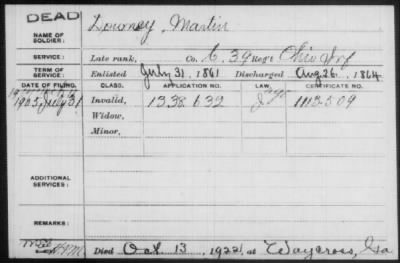 DEAD
NAME OF SOLDIER: Downey, Martin
SERVICE: Late rank, Co. C, 39 Reg't Ohio Inf
TERM OF SERVICE: Enlisted July 31, 1861 Discharged Aug 26, 1864
DATE OF FILING. CLASS. APPLICATION NO. LAW. CERTIFICATE NO.
1905, July 31 Invalid, 1338632 1113509
Widow,
Minor,
ADDITIONAL SERVICES:
REMARKS:
Died Oct. 13, 1922, at Waycross, Ga